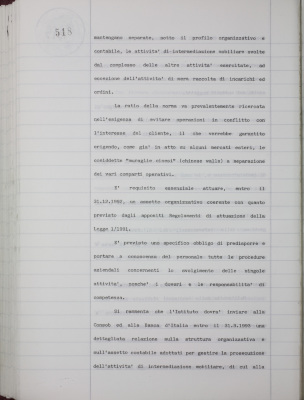 518
mantengano separate, sotto il profilo organizzativo e
contabile, le attivita' di intermediazione mobiliare svolte
dal complesso delle altre attivita' esercitate, ad
eccezione dell'attivita' di mera raccolta di incarichi ed
ordini.
La ratio della norma va prevalentemente ricercata
nell'esigenza di evitare operazioni in conflitto con
l'interesse del cliente, il che verrebbe garantito
erigendo, come gia' in atto su alcuni mercati esteri, le
cosiddette "muraglie cinesi" (chinese walls) a separazione
dei vari comparti operativi.
E' requisito essenziale attuare, entro il
31.10.1992, un assetto organizzativo coerente con quanto
previsto dagli appositi Regolamenti di attuazione della
Legge 1/1991.
E' previsto uno specifico obbligo di predisporre e
portare a conoscenza del personale tutte le procedure
aziendali concernenti lo svolgimento delle singole
attivita', nonche' i doveri e le responsabilita' di
competenza.
Si rammenta che l'Istituto dovra' inviare alla
Consob ed alla Banca d'Italia entro il una
dettagliata relazione sulla struttura organizzativa e
sull'assetto contabile adottati per gestire la prosecuzione
dell'attivita' di intermediazione mobiliare, di cui alla